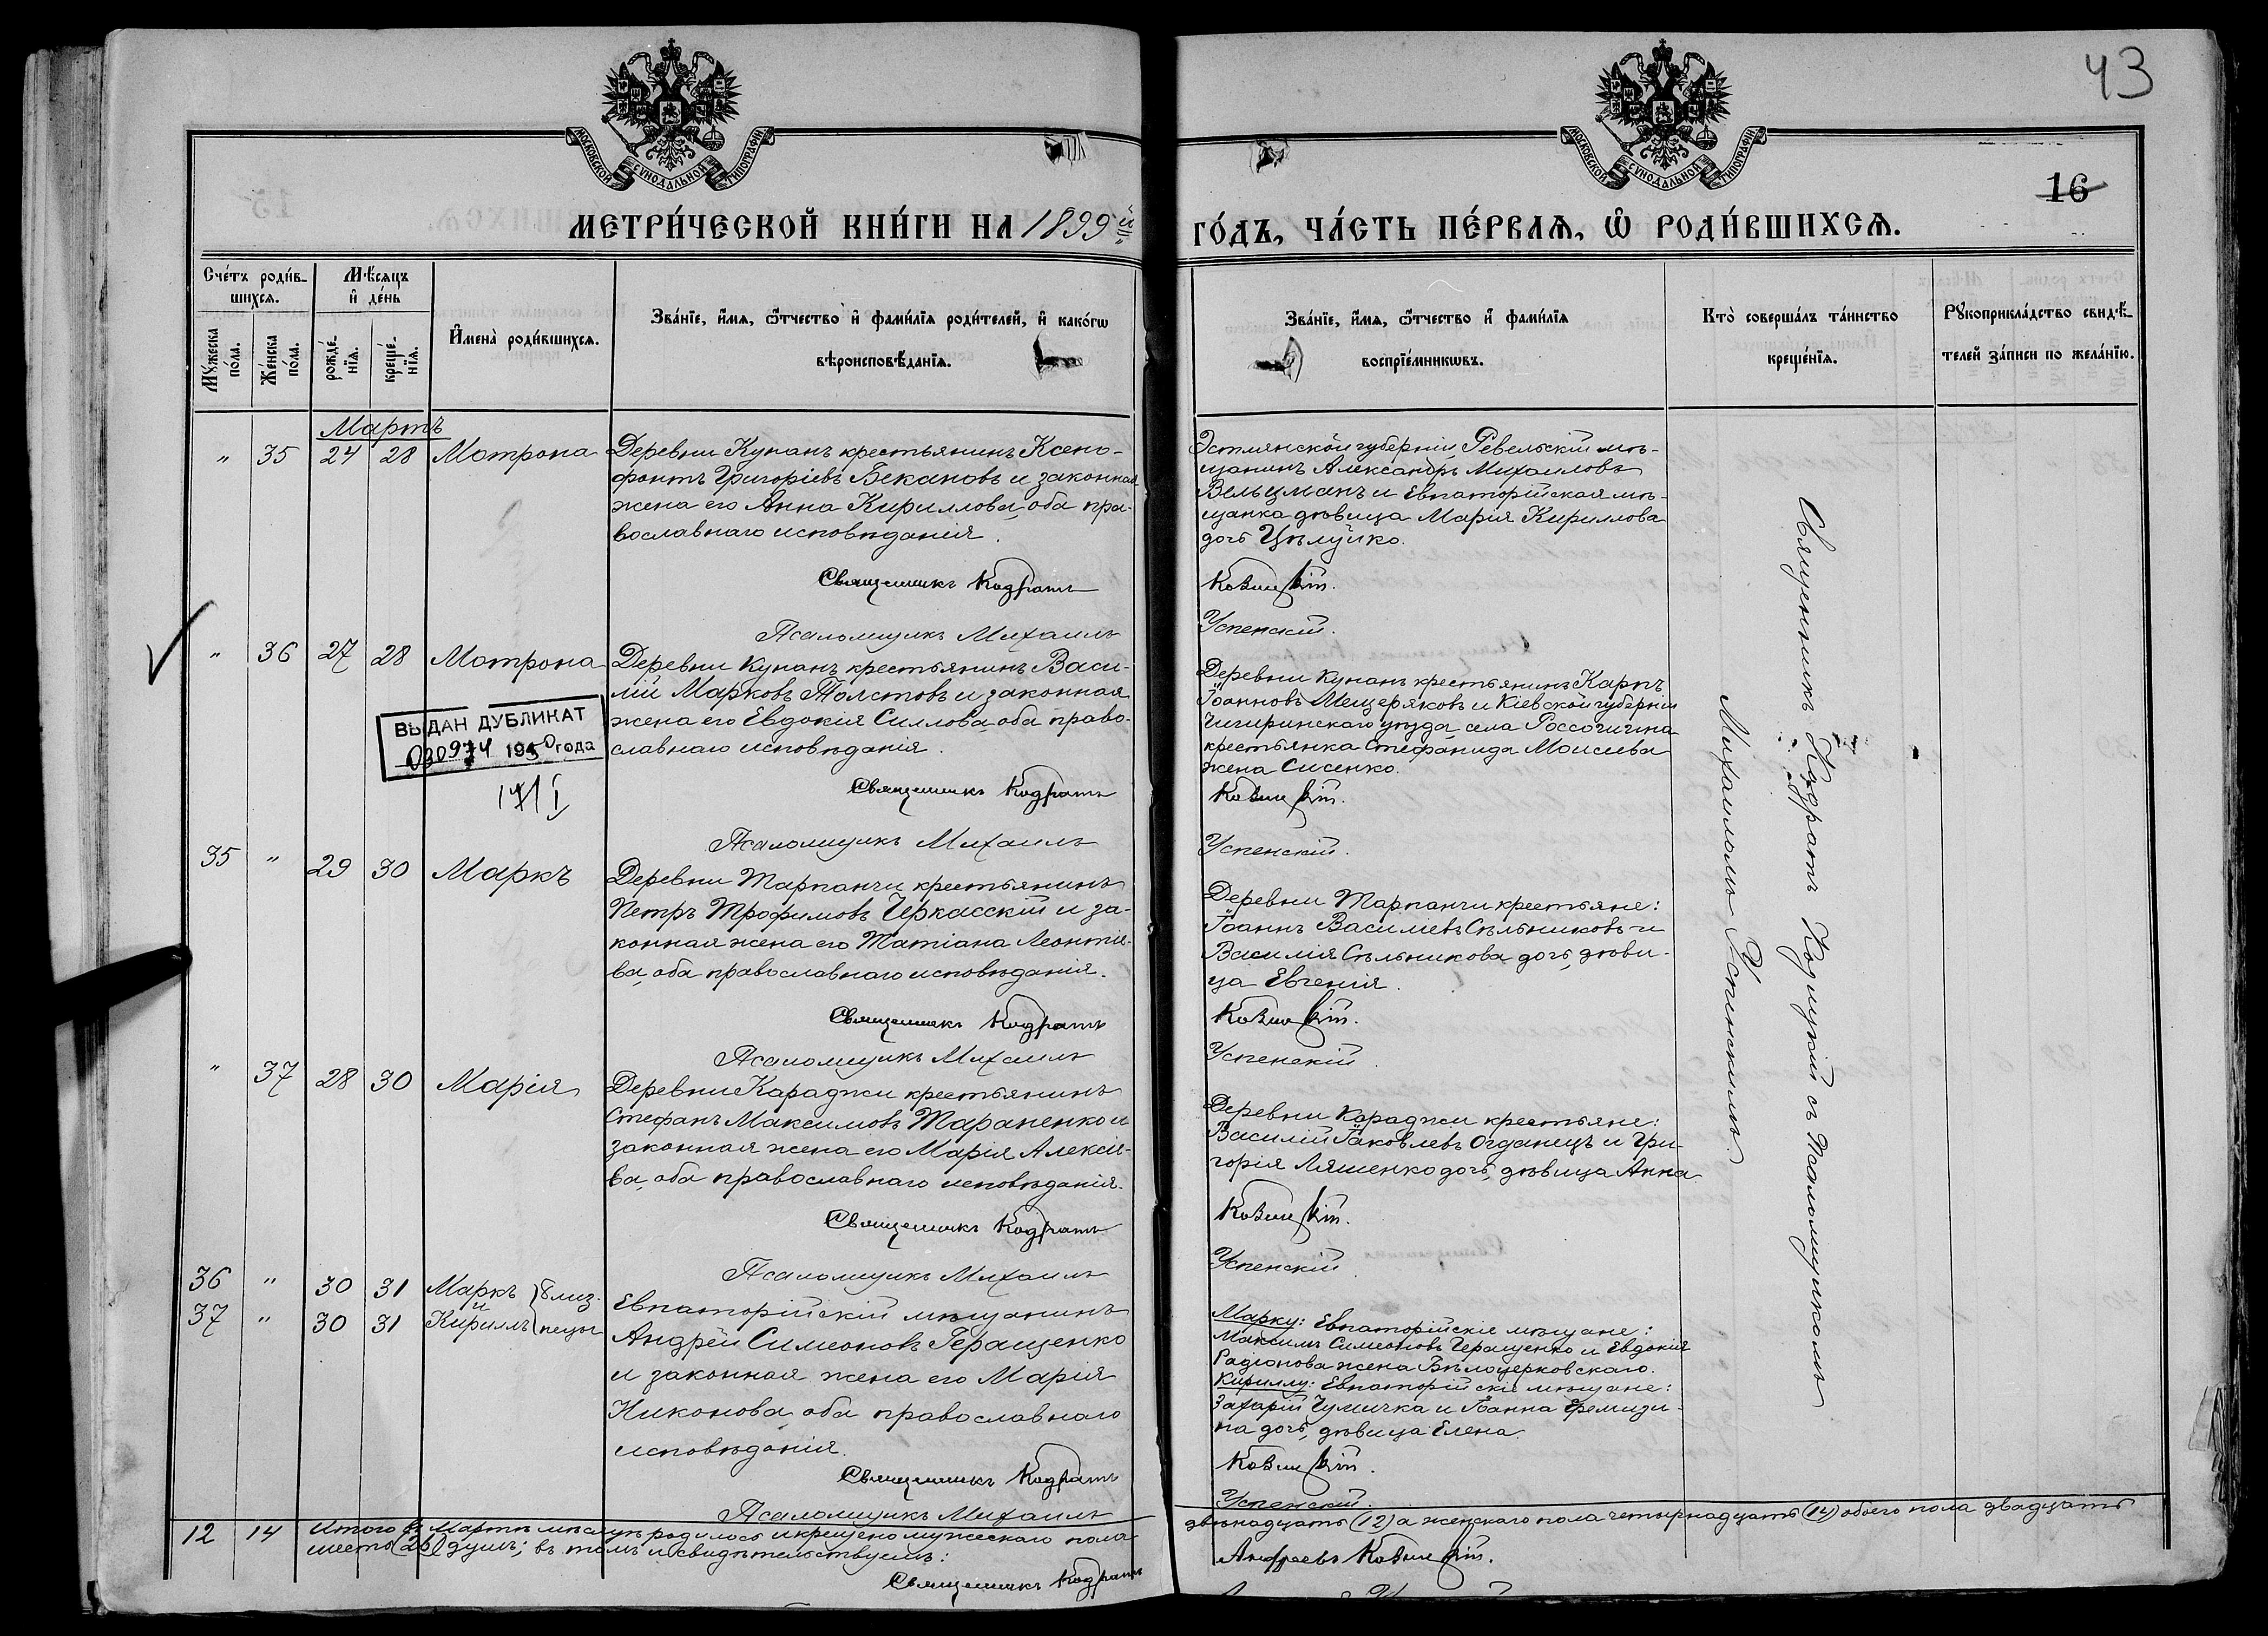 43
16
МОСКОВСКОЙ СѴНОДАЛЬНОЙ ТИПОГРАФІИ
МОСКОВСКОЙ СѴНОДАЛЬНОЙ ТИПОГРАФІИ
МЕТРИ́ЧЕСКОЙ КНИ́ГИ НА 1899й
ГО́ДЪ, ЧА́СТЬ ПЕ́РВАѦ, Ѽ РОДИ́ВШИХСѦ.
Сче́тъ роди́в-
шихсѧ.
Мꙋ́жеска
по́ла.
Же́нска
по́ла.
Мѣ́сѧцъ
и҆ де́нь
рожде́-
нїѧ.
креще́-
нїѧ.
И҆мена̀ роди́вшихсѧ.
Зва́нїе, и҆́мѧ, ѻ҆́тчество и҆ фами́лїѧ роди́телей, и҆ како́гѡ
вѣроисповѣ́данїѧ.
Зва́нїе, и҆́мѧ, ѻ҆́тчество и҆ фами́лїѧ
воспрїе́мникѡвъ.
Кто̀ соверша́лъ та́инство
креще́нїѧ.
Рꙋкоприкла́дство свидѣ́-
телей за́писи по жела́нїю.
Мартъ
" 35 24 28 Матрона
Деревни Кунанъ крестьянинъ Ксено-
фонтъ Григоріевъ Бекановъ и законная
жена его Анна Кириллова, оба пра-
вославнаго исповѣданія.
Священникъ Кодратъ
Псаломщикъ Михаилъ
Эстлянской губерніи, Ревельскій мѣ-
щанинъ Александръ Михаиловъ
Вельцманъ и Евпаторійская мѣ-
щанка дѣвица Марія Кириллова
дочь Цѣлуйко.
Успенскій.
" 36 27 28 Матрона
Деревни Кунанъ крестьянинъ Васи-
лій Марковъ Толстовъ и законная
жена его Евдокія Силлова, оба право-
славнаго исповѣданія.
Священникъ Кодратъ
Псаломщикъ Михаилъ
ВЫДАН ДУБЛИКАТ
030974 1950 года
Деревни Кунанъ крестьянинъ Карпъ
Іоанновъ Мещеряковъ и Кіевской губерніи
Чигиринскаго уѣзда, села Россочичина
крестьянка Стефанида Моисеева
жена Сисенко.
Успенскій.
35 " 29 30 Маркъ
Деревни Тарпанчи крестьянинъ
Петръ Трофимовъ Черкасскій и за-
конная жена его Татіана Леонтіе-
ва, оба православнаго исповѣданія.
Священникъ Кодратъ
Псаломщикъ Михаилъ
Деревни Тарпанчи крестьяне:
Іоаннъ Василіевъ Сѣльниковъ и
Василія Сѣльникова дочь, дѣви-
ца Евгенія.
Успенскій.
" 37 28 30 Марія
Деревни Караджи крестьянинъ
Стефанъ Максимовъ Тараненко и
законная жена его Марія Алексіе-
ва, оба православнаго исповѣданія.
Священникъ Кодратъ
Псаломщикъ Михаилъ
Деревни Караджи крестьяне:
Василій Іаковлевъ Огданецъ и Гри-
горія Ляшенко дочь, дѣвица Анна
Успенскій
36 " 30 31 Маркъ близ-
и
37 " 30 31 Кириллъ нецы
Евпаторійскій мѣщанинъ
Андрей Симеоновъ Геращенко
и законная жена его Марія
Никонова, оба православнаго
исповѣданія.
Священникъ Кодратъ
Псаломщикъ Михаилъ
Марку: Евпаторійскіе мѣщане:
Максимъ Симеоновъ Геращенко и Евдокія
Радіонова жена Бѣлоцерковскаго.
Кириллу: Евпаторійскіе мѣщане:
Захарій Чумичка и Іоанна Еремизи-
на дочь, дѣвица Елена.
Успенскій.
Священникъ Кодратъ Козицкій съ Псаломщикомъ
Михаиломъ Успенскимъ.
12 14 Итого въ Мартѣ мѣсяцѣ родилось и крещено мужескаго пола
двѣнадцать (12) а женскаго пола четырнадцать (14) обоего пола двадцать
шесть (26) душъ; въ томъ и свидѣтельствуемъ:
Священникъ Кодратъ